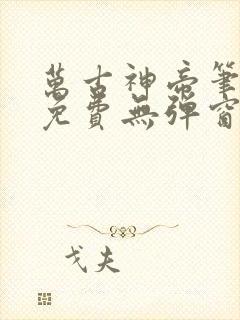 萬古神帝筆
免費無彈窗
戈夫